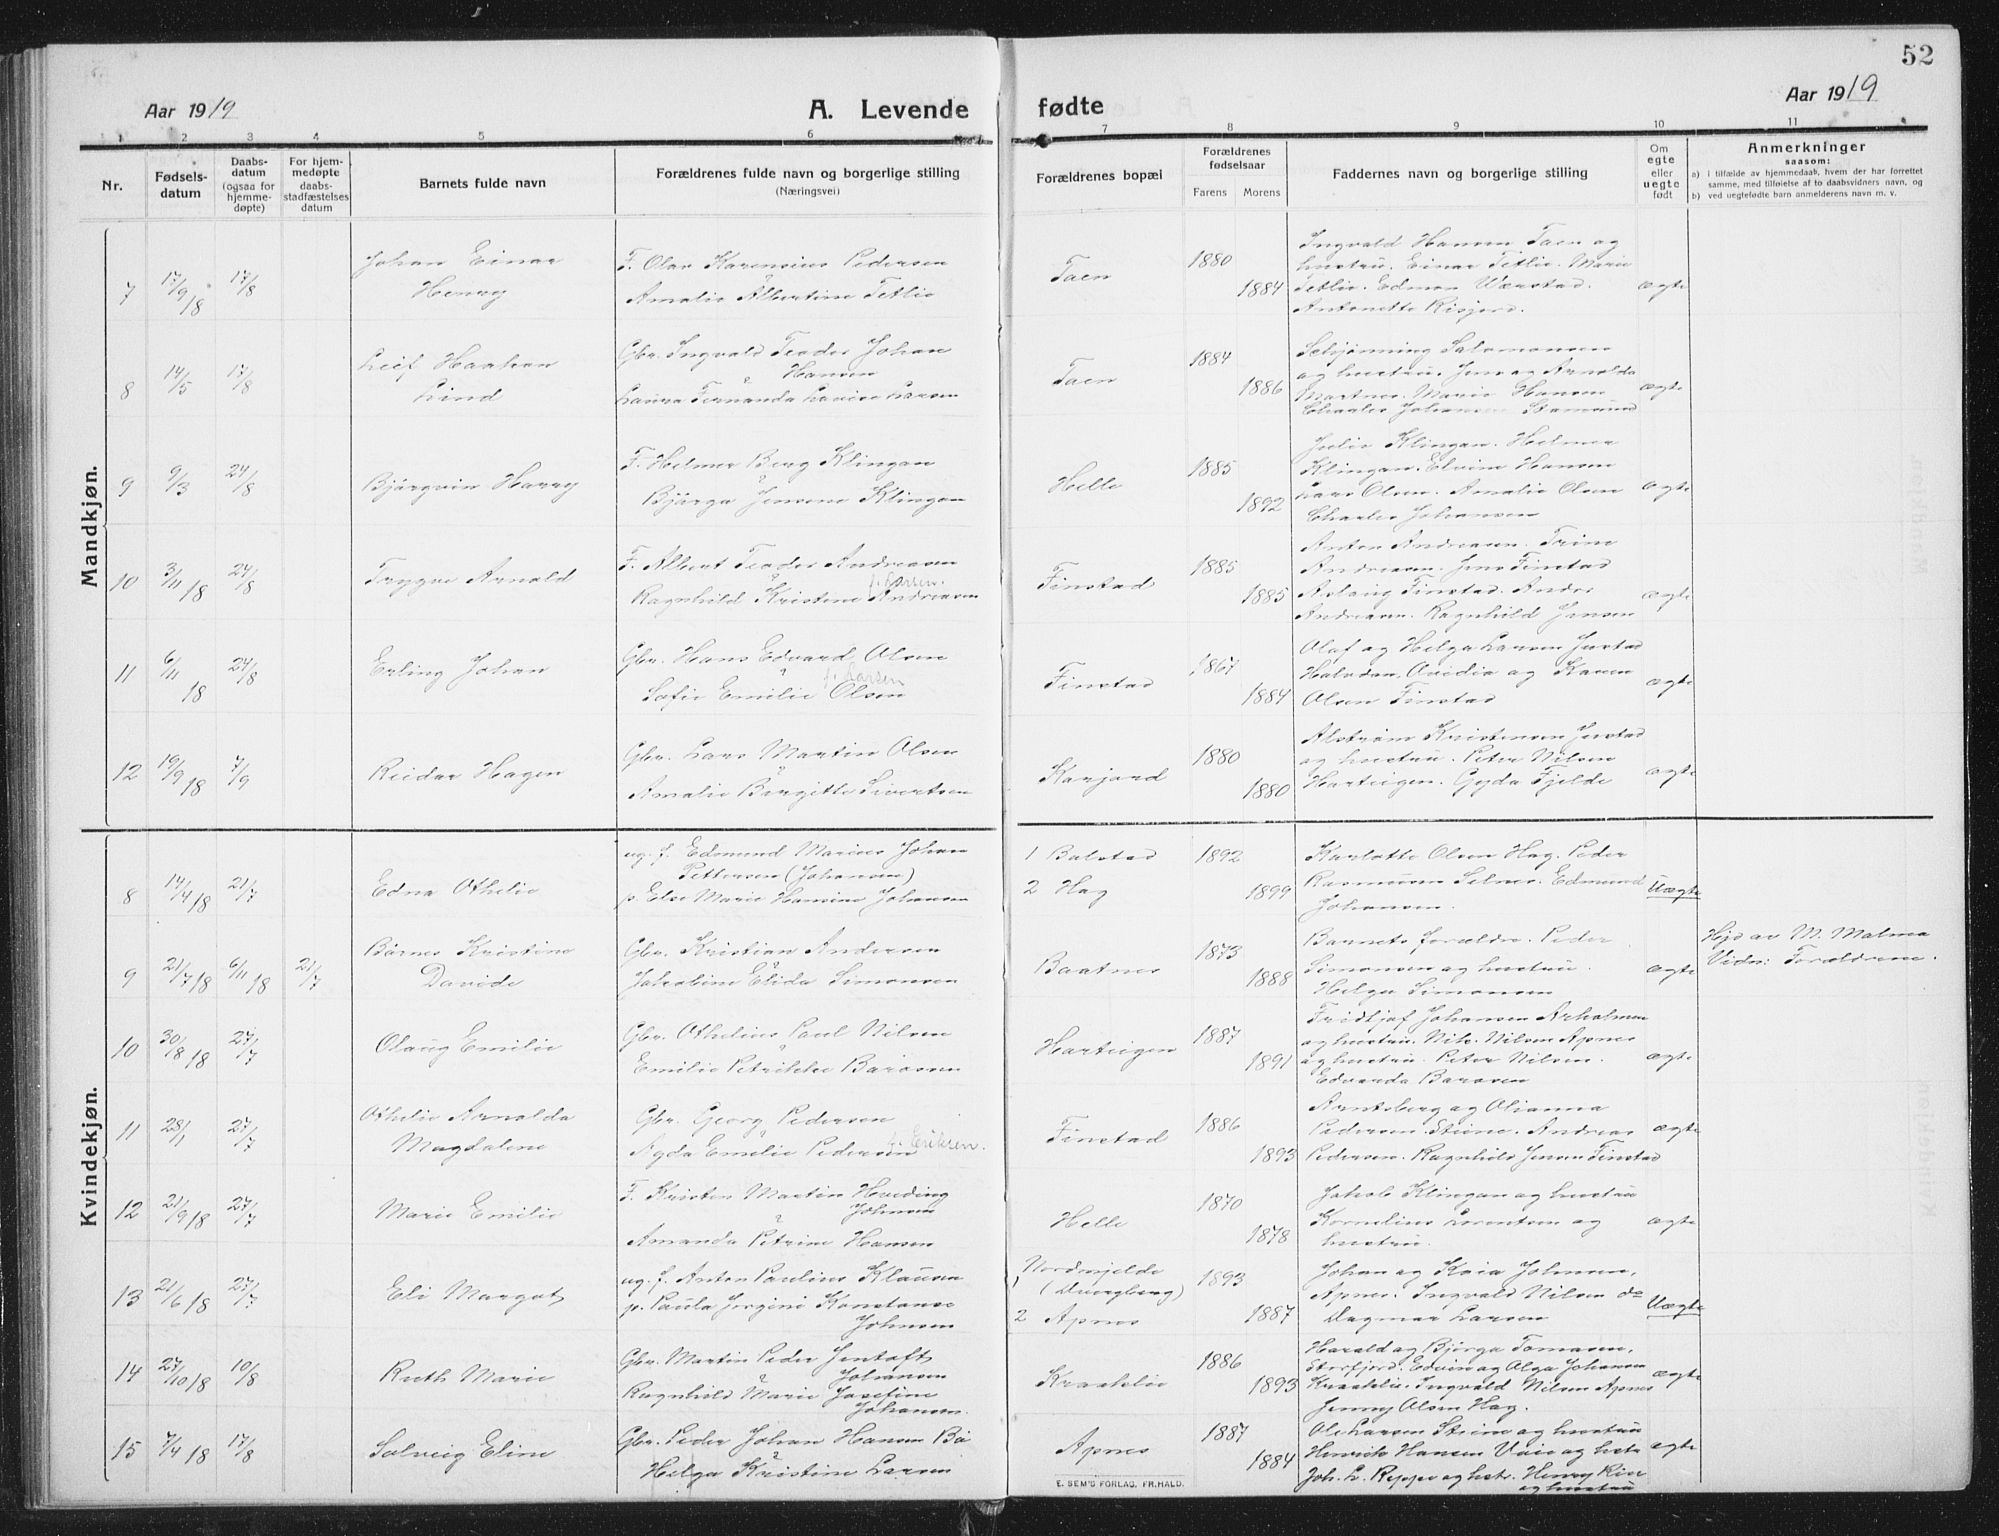 52
Aar 1919
A. Levende
fødte
Aar 1919
1 2 3 4 5 6 7 8 9 10 11
Nr.
Fødsels-
datum
Daabs-
datum
(ogsaa for
hjemme-
døpte)
For hjem-
medøpte
daabs-
stadfæstelses
datum
Barnets fulde navn
Forældrenes fulde navn og borgerlige stilling
(Næringsvei)
Forældrenes bopæl
Forældrenes
fødselsaar
Farens Morens
Faddernes navn og borgerlige stilling
Om
egte
eller
uegte
født
Anmerkninger
saasom:
a) i tilfælde av hjemmedaab, hvem der har forrettet
samme, med tilføielse af to daabsvidners navn, og
b) ved uegtefødte barn anmelderens navn m. v.
Mandkjøn.
7 17/9 18 17/8
Johan Einar
Henry
F. Olav Karensius Pedersen
Amalie Albertine Tetlie
Taen
1880
1884
Ingvald Hansen Taen og
hustru. Einar Tetlie. Marie
Tetlie. Edmon Wærstad.
Antonette Risjord.
ægte
8 14/5 17/8
Leif Haakon
Lind
Gbr. Ingvald Teodor Johan
Hansen
Laura Fernanda Lovise Larsen
Taen
1884
1886
Schjønning Salamonsen
og hustru. Jens og Arnolda
Martnes. Marie Hansen
Charles Johansen Stamsund
ægte
9 9/3 24/8
Bjørgvin Harry
F. Helmer Berg Klingan
Bjørga Jensene Klingan
Helle
1885
1892
Julie Klingan. Helmer
Klingan. Elvine Hansen
Lars Olsen. Amalie Olsen
Charles Johansen
ægte
10 3/11 18 24/8
Trygve Arnold
F. Albert Teodor Andreasen
f. Larsen.
Ragnhild Kristine Andreasen
Finstad
1885
1885
Anton Andreasen. Trine
Andreasen. Jens Finstad
Aslaug Finstad. Andor
Andreasen. Ragnhild Jensen
ægte
11 6/11 18 24/8
Erling Johan
Gbr. Hans Edvard Olsen
f. Larsen
Sofie Emilie Olsen
Finstad
1867
1884
Olaf og Helga Larsen Justad
Halvdan, Ovidia og Karen
Olsen Finstad
ægte
12 19/9 18 7/9
Reidar Hagen
Gbr. Lars Martin Olsen
Amalie Birgitte Sivertsen
Korjord
1880
1880
Alstrøm Kristensen Justad
og hustru. Peter Nilsen
Harteigen. Gyda Fjelde
ægte
Kvindekjøn.
8 14/4 18 21/7
Edna Othelie
ug. f. Edmund Marius Johan
Pettersen (Johansen)
p. Else Marie Hansine Johansen
1 Balstad
2 Hag
1892
1899
Karlotte Olsen Hag. Peder
Rasmussen Selnes. Edmund
Johansen.
Uægte
9 21/7 18 6/11 18 21/7
Børnes Kristine
Davide
Gbr. Kristian Andersen
Jakobine Elida Simonsen
Baatnes
1873
1888
Barnets forældre. Peder
Simonsen og hustru.
Helga Simonsen
ægte
Hjd av M. Malmea
Vidn: Forældrene.
10 30/8 18 27/7
Olaug Emilie
Gbr. Othelius Paul Nilsen
Emilie Petrikke Barosen
Harteigen
1887
1891
Fridtjof Johansen Arholmen
og hustru. Nik. Nilsen Apnes
og hustru. Peter Nilsen.
Edvarda Barosen
ægte
11 28/1 27/7
Othelie Arnolda
Magdalene
Gbr. Georg Pedersen
Agda Emelie Pedersen f. Eriksen.
Finstad
1886
1893
Arntsberg og Olianna
Pedersen. Steine. Andreas
Pedersen. Ragnhild Jensen Finstad
ægte
12 21/9 18 27/7
Marie Emilie
F. Kristen Martin Hveding
Johnsen
Amanda Petrine Hansen
Helle
1870
1878
Jakob Klingan og hustru
Kornelius Lorentsen og
hustru.
ægte
13 21/6 18 27/7
Eli Margot
ug. f. Anton Paulius Klausen
p. Paula Jørgine Konstanse
Johnsen
1 Nordmjelde
(Dverberg)
2 Apnes
1893
1887
Johan og Kaia Johnsen,
Apnes. Ingvald Nilsen do
Dagmar Larsen
Uægte
14 27/10 18 10/8
Ruth Marie
Gbr. Martin Peder Jentoft
Johansen
Ragnhild Marie Josefine
Johansen.
Kraaklie
1886
1893
Harald og Bjørga Tomasen,
Storfjord. Edvin og Olga Johansen
Kraaklie. Ingvald Nilsen Apnes
Jenny Olsen Hag.
ægte
15 7/4 18 17/8
Solveig Eline
Gbr. Peder Johan Hansen Bø
Helga Kristine Larsen
Apnes
1887
1884
Ole Larsen Steine og hustru
Henrik Hansen Vaie og hstr
Joh. L. Reppe og hstr. Henry Riise
og hustru
ægte
E. SEM'S FORLAG, FR.HALD.